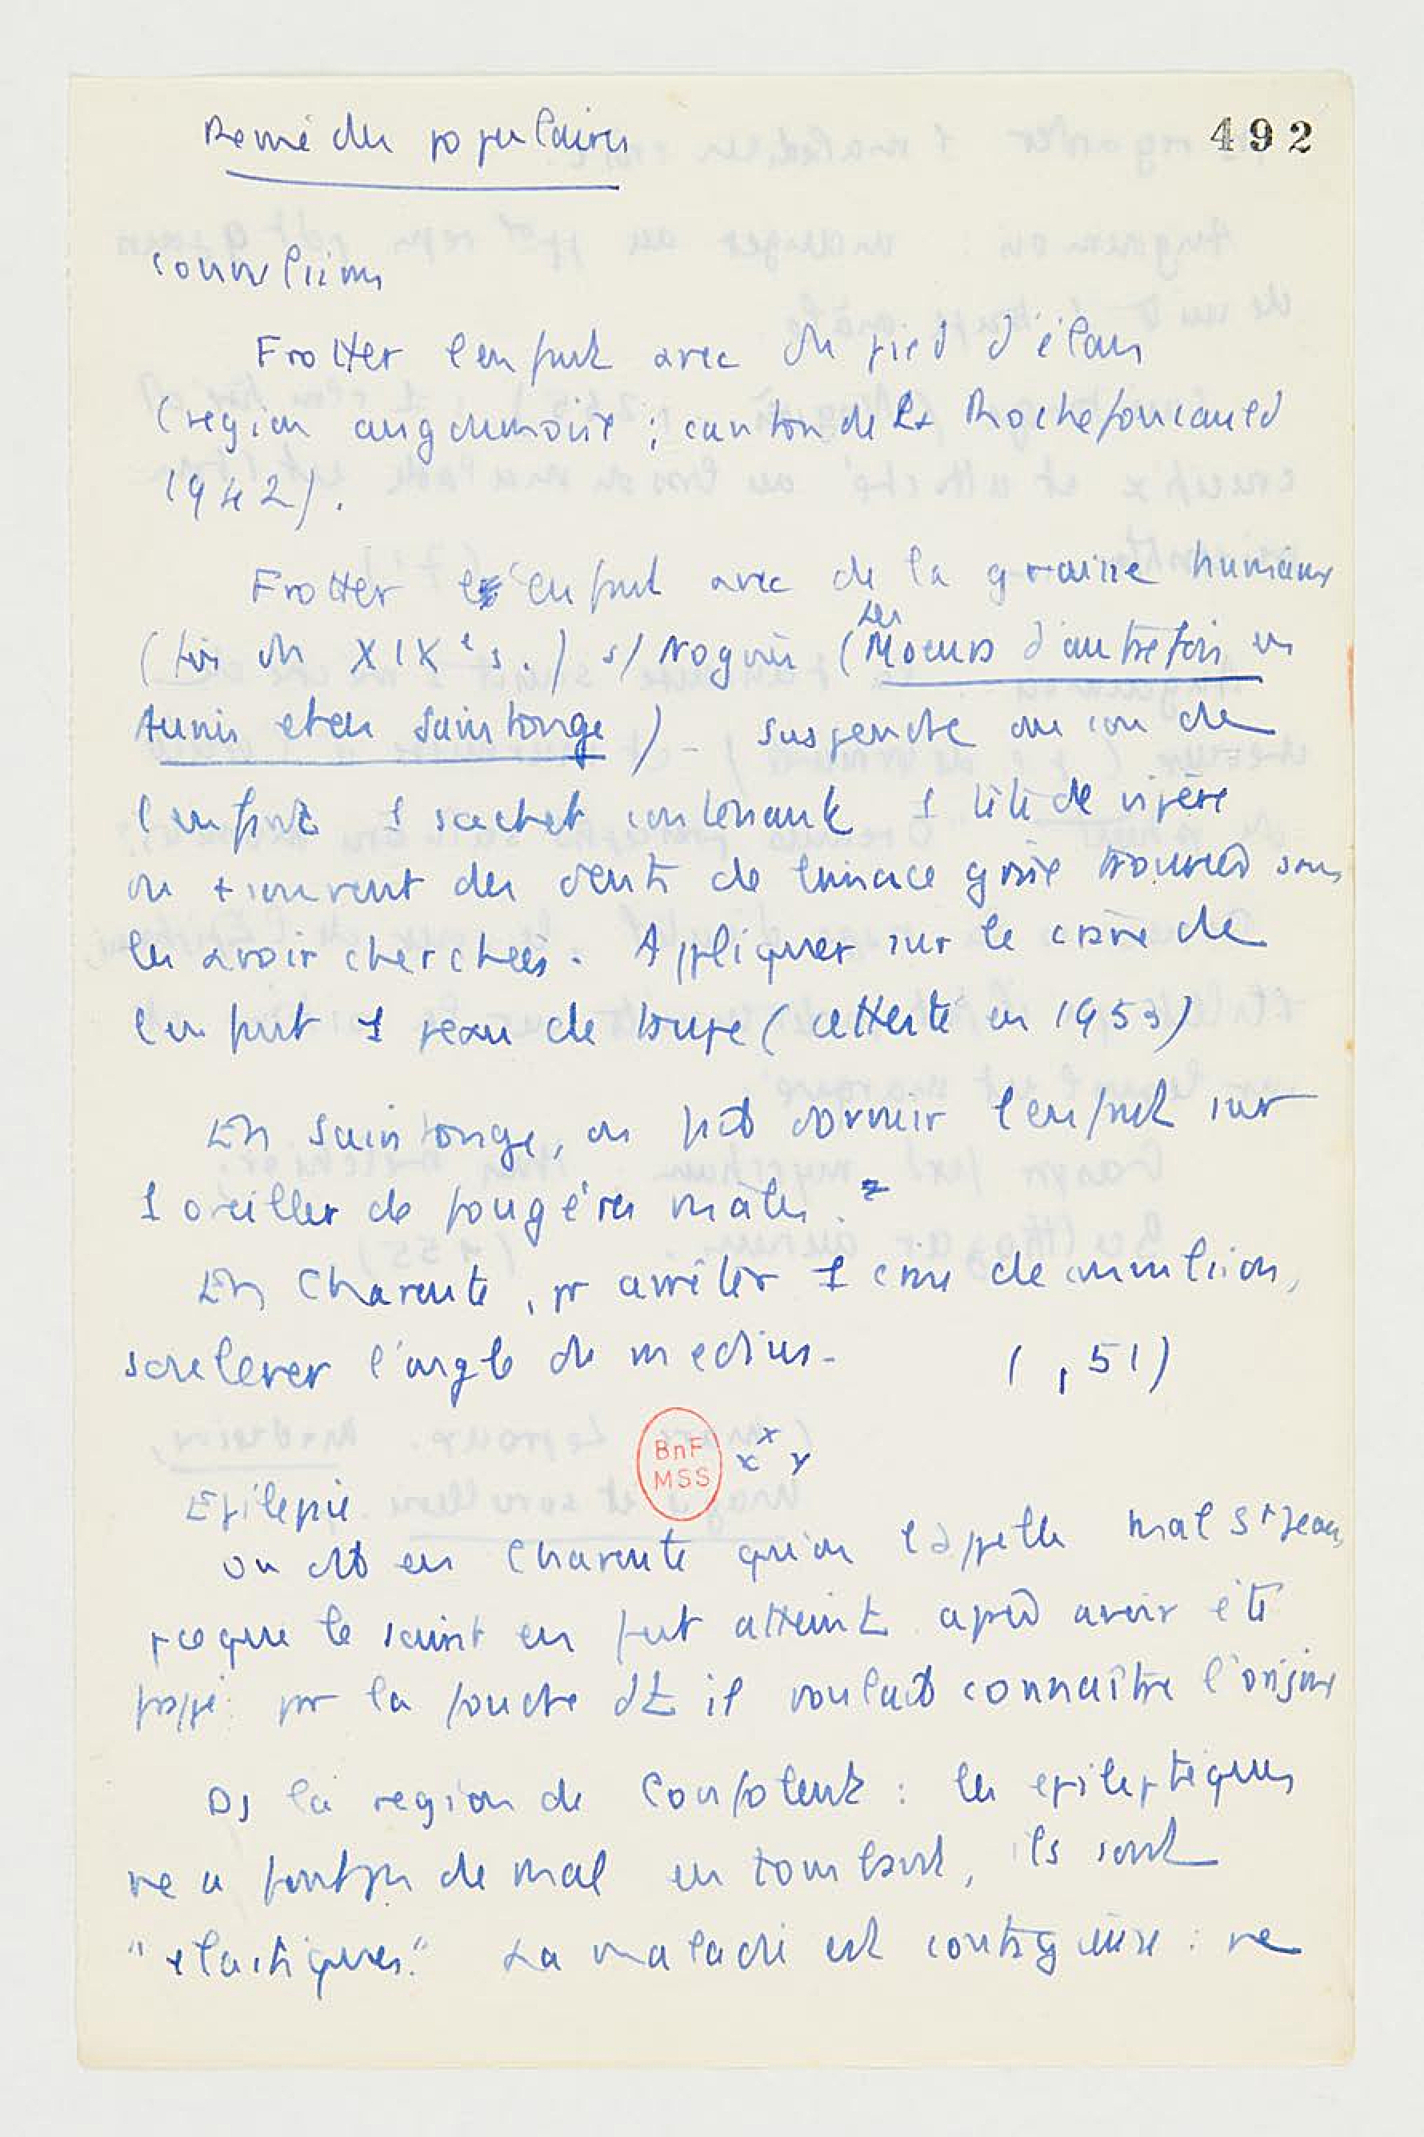 492
Remèdes populaires
convulsions
Frotter l'enfant avec du pied d'élan
(région angoumoise ; canton de La Rochefoucauld
1942).
Frotter l'enfant avec de la graisse humaine
(fin du XIXe s.) s/ Noguès (Les Moeurs d'autrefois en
Aunis et en Saintonge) - suspendre au cou de
l'enfant 1 sachet contenant 1 tête de vipère
ou + souvent des dents de limace grise trouvées sans
les avoir cherchées. Appliquer sur le crâne de
l'enfant 1 peau de taupe (attesté en 1953)
En Saintonge, on fait dormir l'enfant sur
1 oreiller de fougères mâles.
En Charente, pr arrêter 1 crise de convulsions,
soulever l'ongle du medius. ( , 51)
x x x
BnF
MSS
Epilepsie
on dit en Charente qu'on l'appelle mal St Jean,
pce que le saint en fut atteint après avoir été
frappé par la foudre dt il voulait connaître l'origine
Ds la région de Confolens : les epileptiques
ne se font pas de mal en tombant, ils sont
"élastiques". La maladie est contagieuse : ne